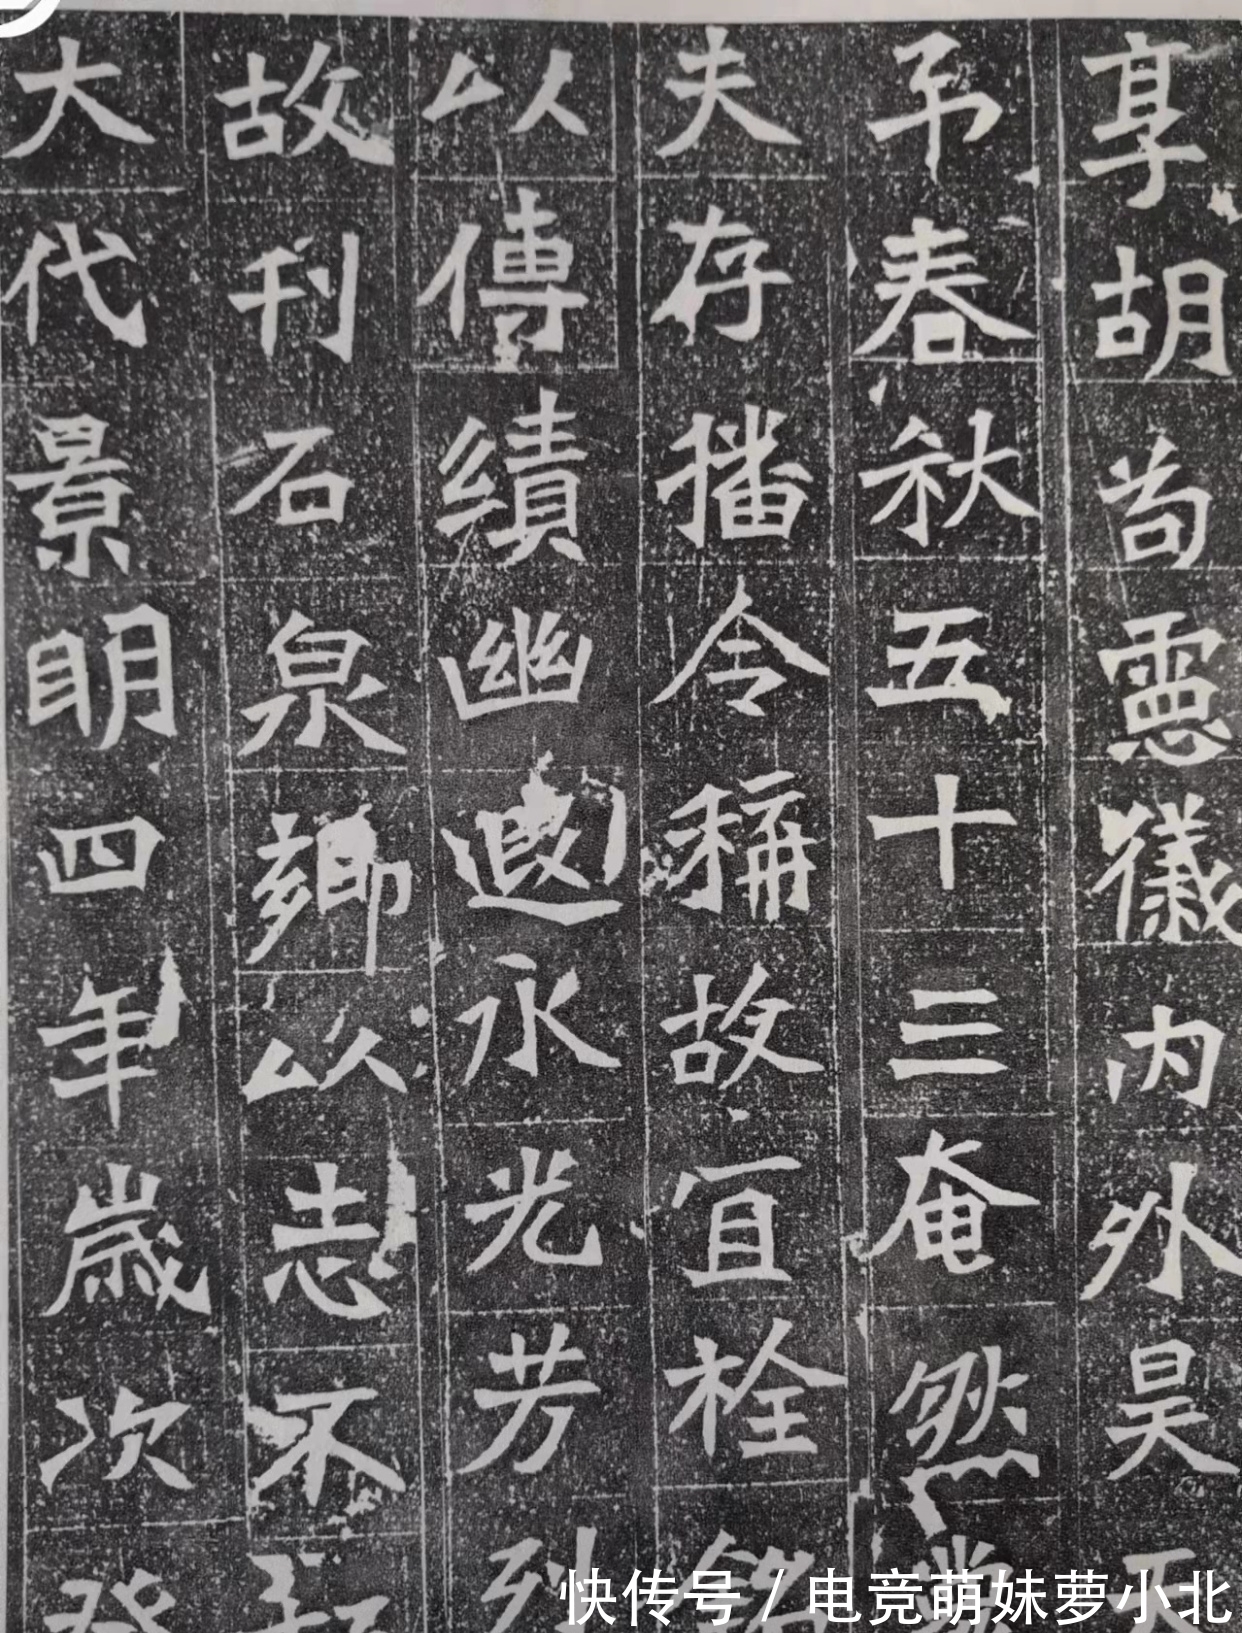 享胡苟靈儀内外昊天
弔春秋五十三奄然
夫存播令稱故宜栓銘
以傳績幽遐永光芳列
故刊石泉鄉以志不
大代景明四年歲次癸
快传号 / 电竞萌妹萝小北